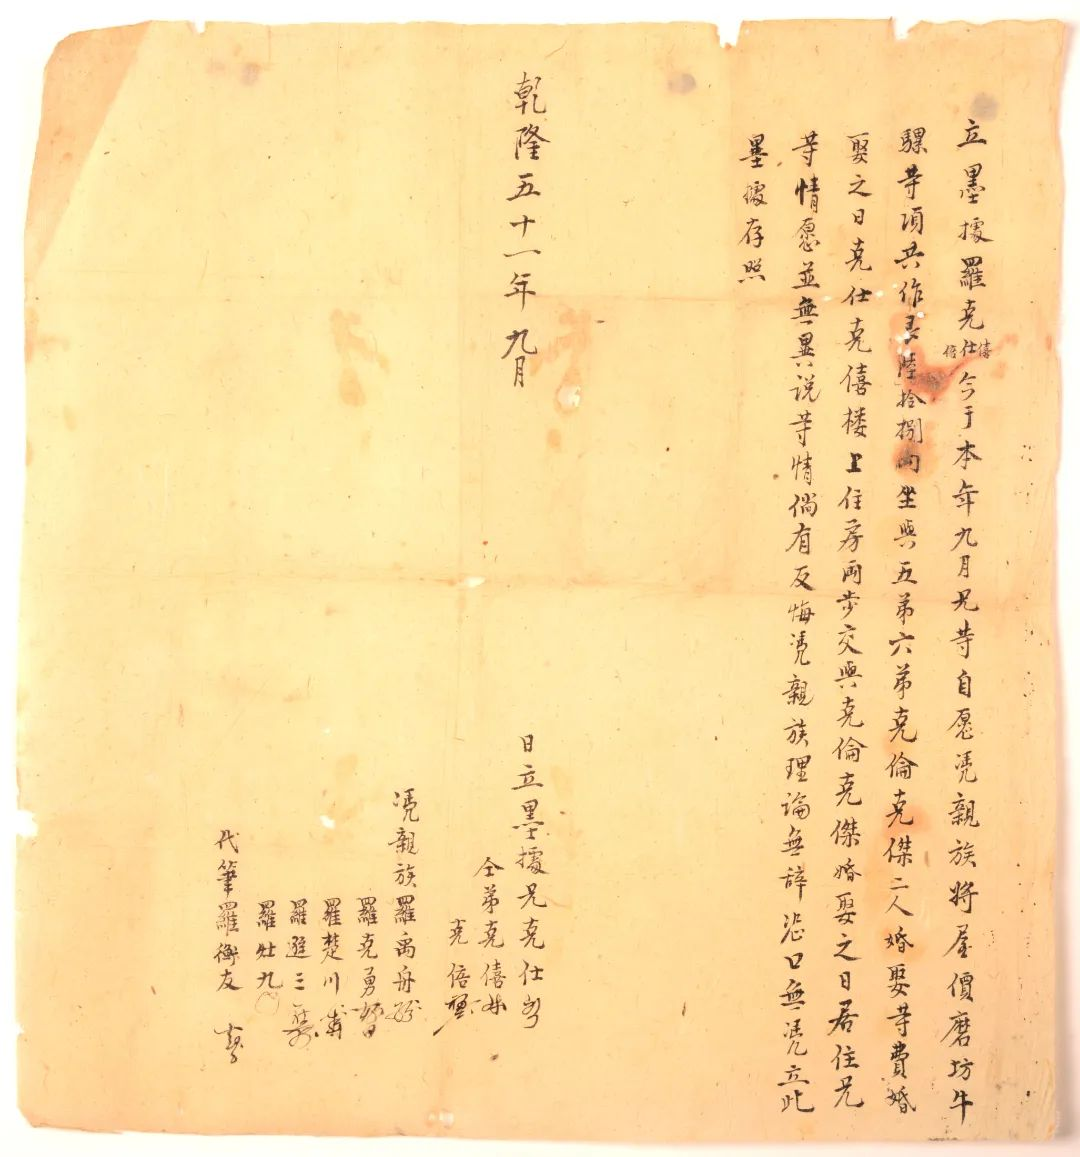 立墨據羅克仕僖倍今于本年九月兄等自愿凴親族將屋價磨坊牛
騾等項共作艮陸拾捌両坐與五弟六弟克倫克傑二人婚娶等費婚
娶之日克仕克僖楼上住房両步交與克倫克傑婚娶之日居住兄
等情愿並無異説等情倘有反悔凴親族理論無辞恐口無凴立此
墨據存照
乾隆五十一年九月
日立墨據兄克仕
仝弟克僖
克倍
凴親族羅禹舟
羅克勇
羅楚川
羅進三
羅灶九
代筆羅衡友